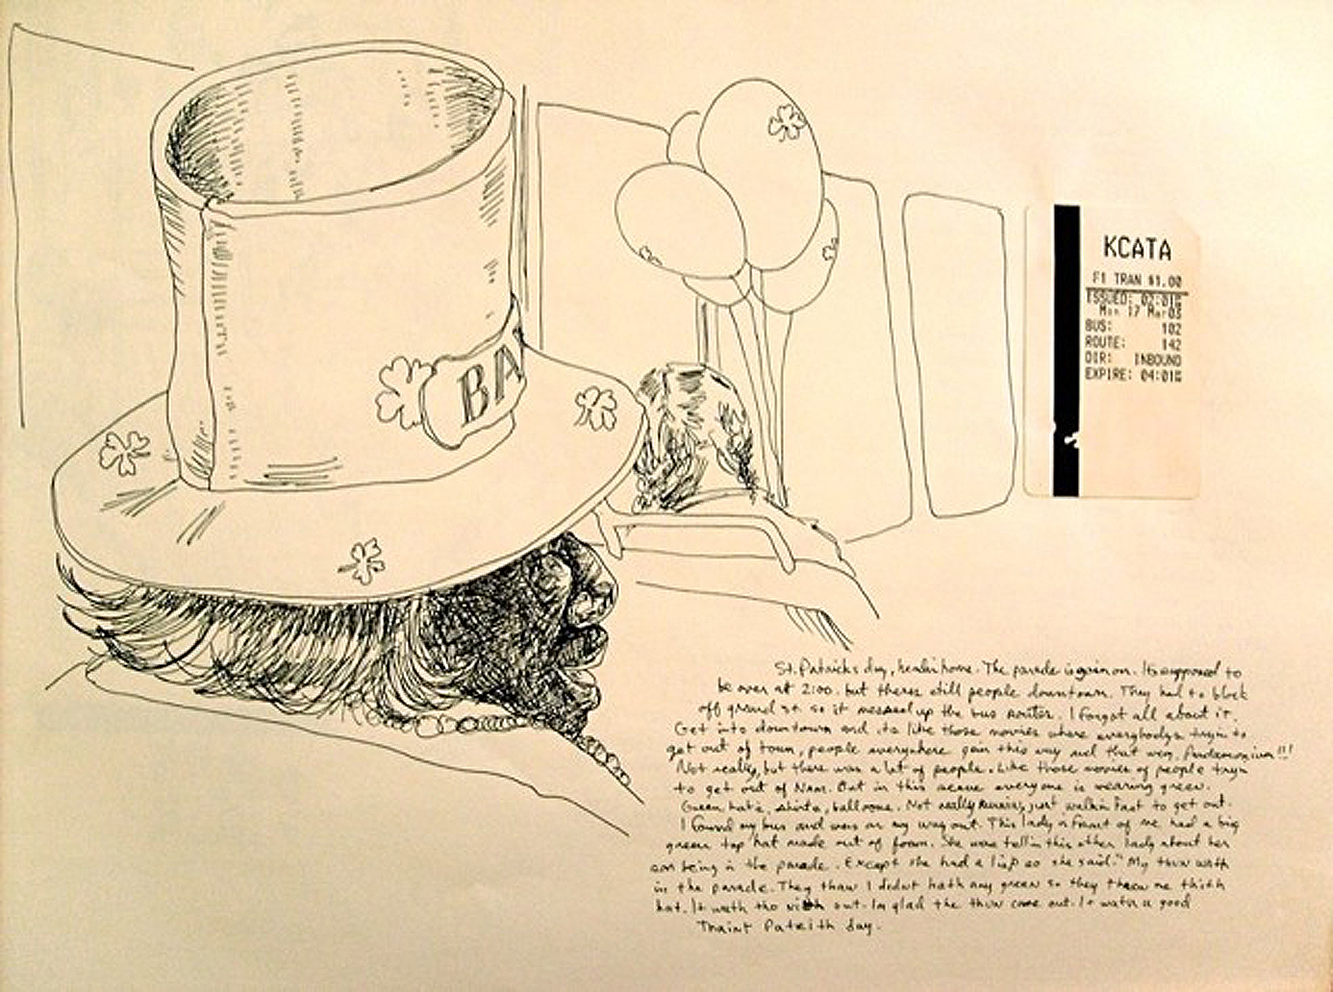 BA
KCATA
F1 TRAN $1.00
ISSUED: 02:01
Mon 17 Mar03
BUS: 102
ROUTE: 142
DIR: INBOUND
EXPIRE: 04:01
St. Patricks day, headin home. The parade is goin on. Its supposed to
be over at 2:00. but theres still people downtown. They had to block
off grand st so it messed up the bus routes. I forgot all about it.
Get into downtown and its like those movies where everybodys tryin to
get out of town, people everywhere goin this way and that way. Pandamonium!!!
Not really, but there was a lot of people. Like those movies of people tryin
to get out of Nam. But in this scene everyone is wearing green.
Green hats, shirts, balloons. Not really running, just walkin fast to get out.
I found my bus and was on my way out. This lady in front of me had a big
green top hat made out of foam. She was tellin this other lady about her
son being in the parade. Except she had a lisp so she said." My thun wath
in the parade. They thaw I didnt hath any green so they threw me thith
hat. It wath tho nith out. Im glad the thun came out. It wath a good
Thaint Patrith day.